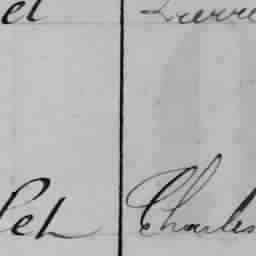 el Pierre
let Charles